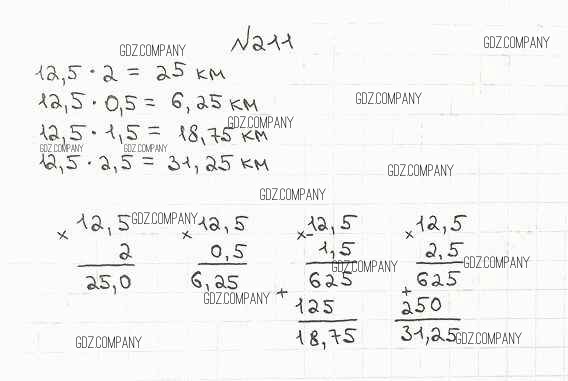 №211
GDZ.COMPANY GDZ.COMPANY
12,5 · 2 = 25 км
12,5 · 0,5 = 6,25 км
GDZ.COMPANY
12,5 · 1,5 = 18,75 км
GDZ.COMPANY
GDZ.COMPANY GDZ.COMPANY
12,5 · 2,5 = 31,25 км
GDZ.COMPANY
GDZ.COMPANY
× 12,5 × 12,5 × 12,5 × 12,5
GDZ.COMPANY
2 0,5 1,5 2,5
GDZ.COMPANY GDZ.COMPANY
25,0 6,25 625 625
GDZ.COMPANY
+ 125 + 250
18,75 31,25
GDZ.COMPANY GDZ.COMPANY